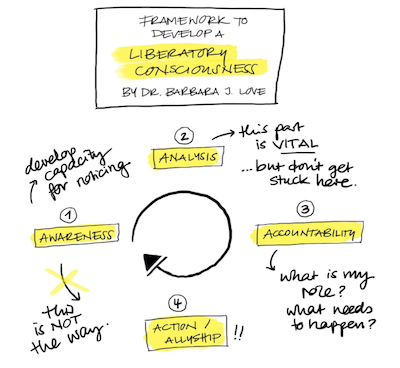 FRAMEWORK TO
DEVELOP A
LIBERATORY
CONSCIOUSNESS
BY DR. BARBARA J. LOVE
2
ANALYSIS
this part
is VITAL
...but don't get
stuck here.
develop
capacity
for noticing
1
AWARENESS
3
ACCOUNTABILITY
this
is NOT
the way.
what is my
role?
what needs
to happen?
4
ACTION /
ALLYSHIP !!